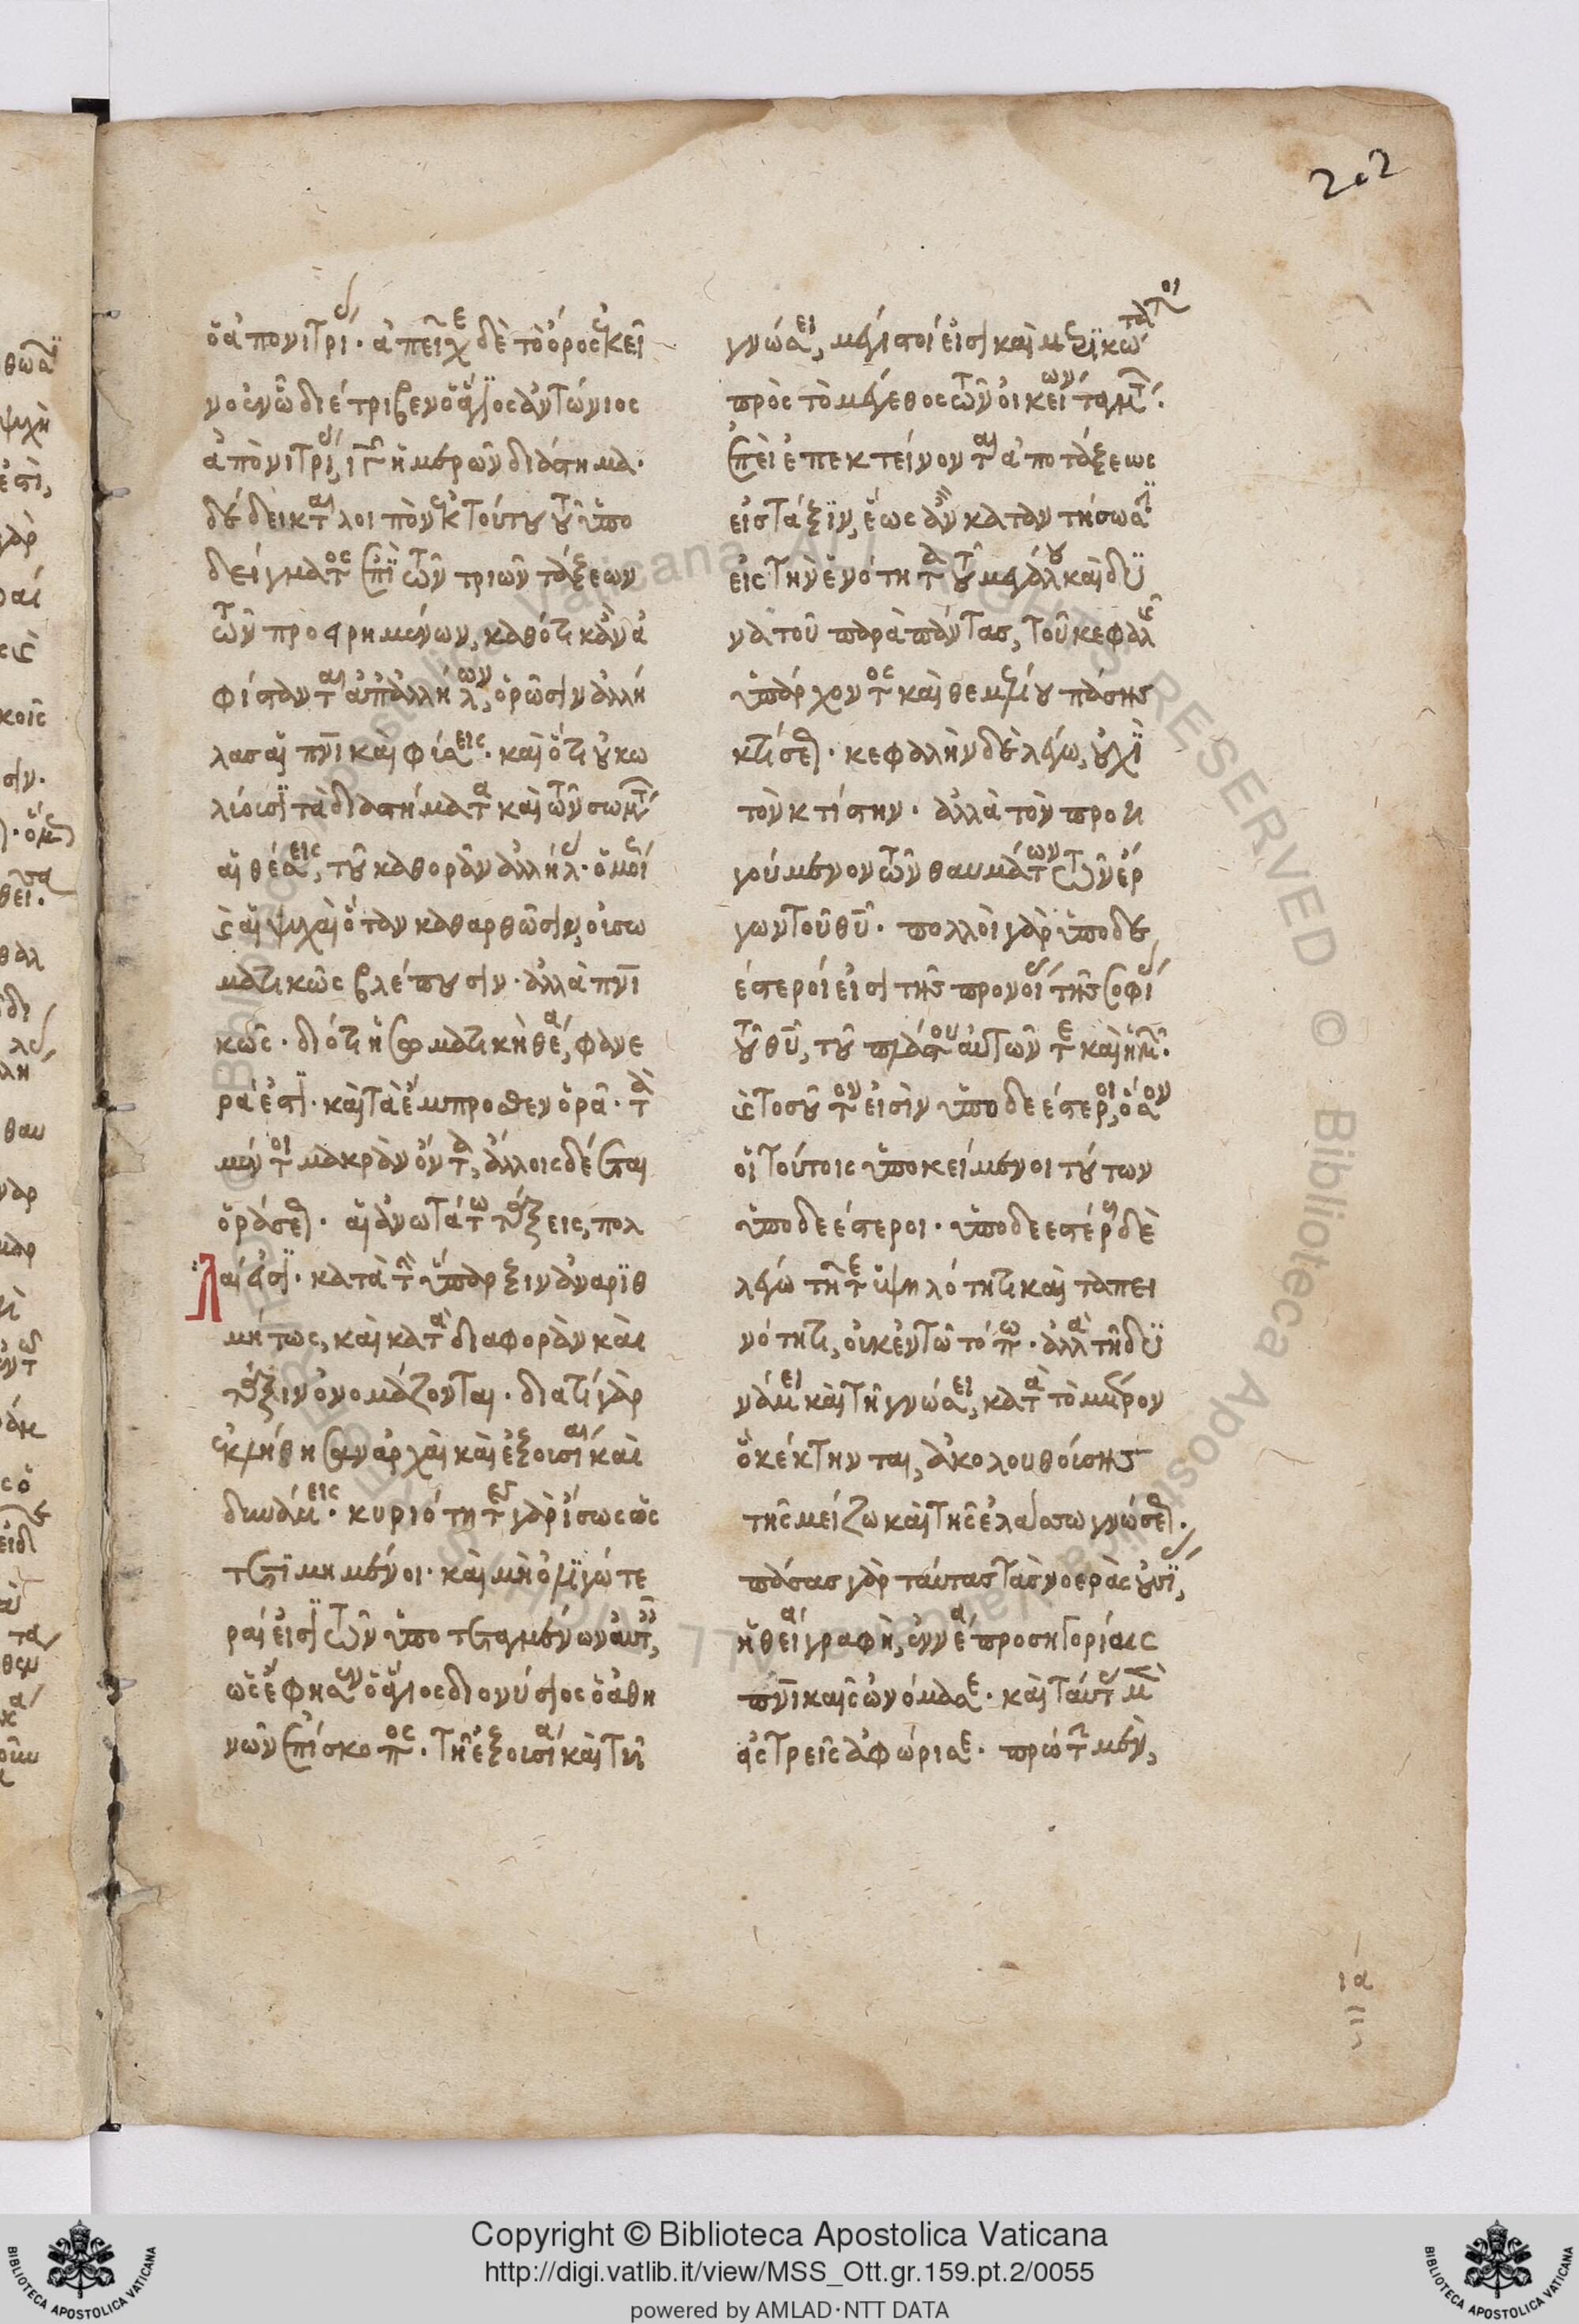 202
ὁ ἀπὸ νιτρί. ἀπεῖχε δὲ τὸ ὄρος ἐκεῖ
νο ἐν ᾧ διέτριβεν ὁ ἅγιος ἀντώνιος
ἀπὸ νιτρί, ιγ ἡμερῶν διάστημα.
δέδεικται λοιπὸν ἐκ τούτου τοῦ ὑπο
δείγματος ἐπὶ τῶν τριῶν τάξεων
τῶν προειρημένων, καθότι κἂν ἀ
φίστανται ἀπ᾽ ἀλλήλων, ὁρῶσιν ἀλλή
λας αἱ πνι καὶ φι
λύουσι τὰ διαστήματα καὶ τῶν σωμτ
αἱ θέσεις, τοῦ καθορᾶν ἀλλήλ. ὁμοί
ως αἱ ψυχαὶ ὅταν καθαρθῶσιν, οὐ σω
ματικῶς βλέπουσιν. ἀλλὰ πνι
κῶς. διότι ἡ σωματικὴ θέα, φανε
ρά ἐστι. καὶ τὰ ἔμπροσθεν ὁρᾶ. τὰ
μέντοι μακρὰν ὄντα, ἄλλοις δέεται
ὁράσεως. αἱ ἀνωτάτω τάξεις, πολ
λαί εἰσι. κατὰ τὴν ὕπαρξιν ἀναριθ
μήτως, καὶ κατὰ διαφορὰν καὶ
τάξιν ὀνομάζονται. διατί γὰρ
ἐκλήθησαν ἀρχαὶ καὶ ἐξουσίαι καὶ
δυνάμεις. κυριότητες γὰρ ἴσως ὡς
τετιμημένοι. καὶ μὴ ὀλιγώτε
ραί εἰσι τῶν ὑποτεταγμένων αὐτ,
ὡς ἔφησεν ὁ ἅγιος διονύσιος ὁ ἀθη
νῶν ἐπίσκοπος. τῇ ἐξουσία καὶ τῇ
γνώσει, μέγιστοί εἰσι καὶ μερικώτατοι
πρὸς τὸ μέγεθος τῶν οἰκείων ταγμτ.
ἐπεὶ ἐπεκτείνονται ἀπὸ τάξεως
εἰς τάξιν, ἕως ἂν καταντήσωσι
εἰς τὴν ἑνότητα τοῦ μεγάλου καὶ δυ
νατοῦ παρὰ πάντας, τοῦ κεφαλῆς
ὑπάρχοντος καὶ θεμελίου πάσης
κτίσεως. κεφαλὴν δὲ λέγω, οὐχὶ
τὸν κτίστην. ἀλλὰ τὸν προη
γούμενον τῶν θαυμάτων τῶν ἔρ
γων τοῦ θυ. πολλοὶ γὰρ ὑποδε
έστεροί εἰσι τῆς προνοί τῆς σοφί
τοῦ θυ, τοῦ πλάστου αὐτῶν τε καὶ ἡμ.
ἐς τοσοῦτον εἰσὶν ὑποδεέστεροι, ὅσον
οἱ τούτοις ὑποκείμενοι τούτων
ὑποδεέστεροι. ὑποδεεστέρους δὲ
λέγω τῆ τε ὑψηλότητι καὶ ταπει
νότητι, οὐκ ἐν τῶ τόπω. ἀλλὰ τῆ δυ
νάμει καὶ τῆ γνώσει, κατὰ τὸ μέρον
ὃ κέκτηνται, ἀκολουθούσης
τῆς μείζω καὶ τῆς ἐλάσσω γνώσεως.
πάσας γὰρ ταύτας τὰς νοερὰς οὐσί,
ἡ θεία γραφὴ, ἐννέα προσηγορίαις
πνικαῖς ὠνόμασε. καὶ ταύτ μ
εἰς τρεῖς ἀφώρισε. πρώτην μὲν,
ια
Copyright © Biblioteca Apostolica Vaticana
http://digi.vatlib.it/view/MSS_Ott.gr.159.pt.2/0055
powered by AMLAD·NTT DATA